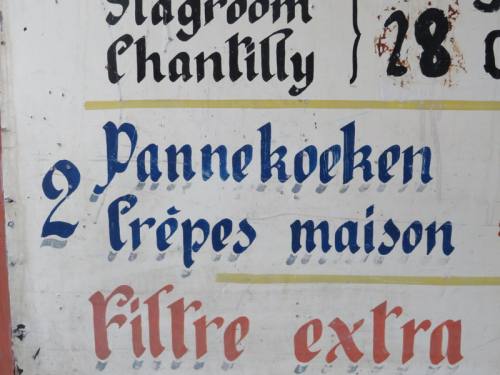 Slagroom
Chantilly
28
2
Pannekoeken
Crêpes maison
Filtre extra